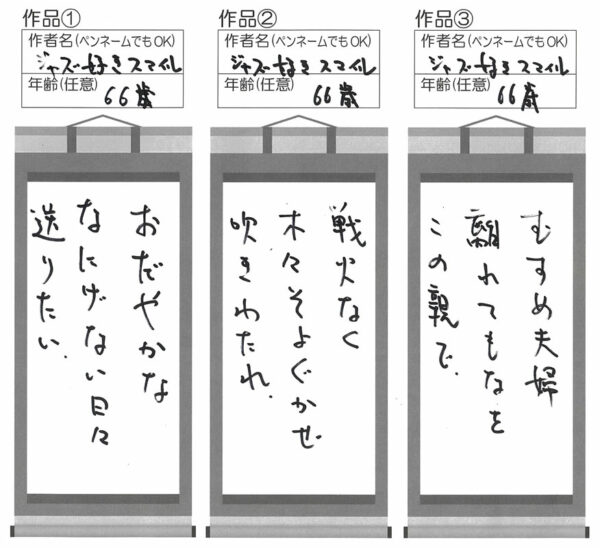 作品①
作者名(ペンネームでもOK)
ジャズ好きスマイル
年齢(任意)
66歳
おだやかな
なにげない日々
送りたい.
作品②
作者名(ペンネームでもOK)
ジャズ好きスマイル
年齢(任意)
66歳
戦火なく
木々そよぐかぜ
吹きわたれ.
作品③
作者名(ペンネームでもOK)
ジャズ好きスマイル
年齢(任意)
66歳
むすめ夫婦
離れてもなを
この親で.